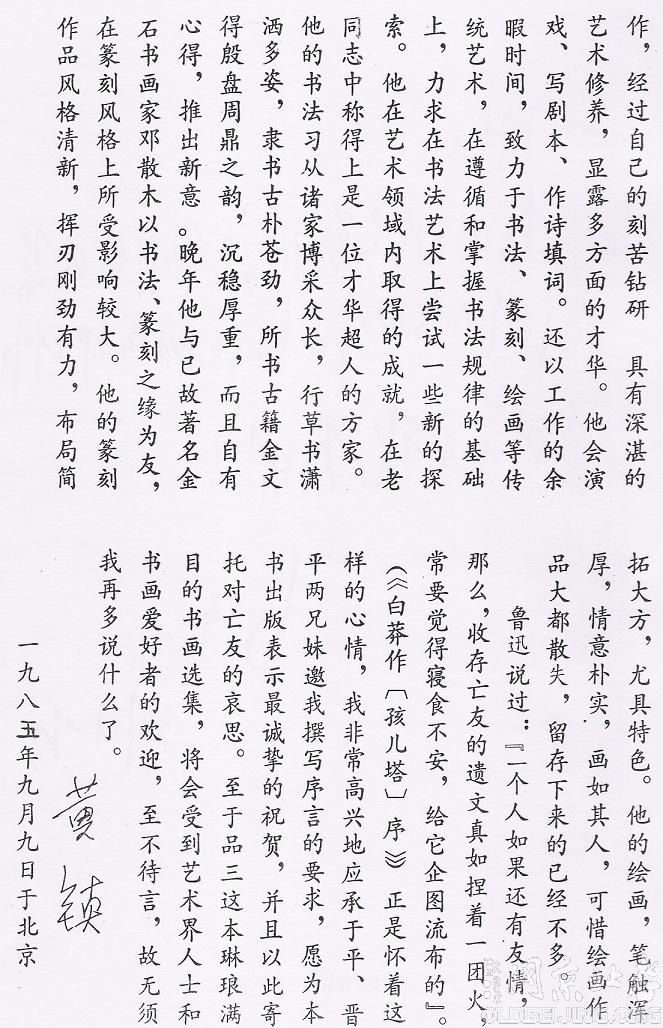 作，经过自己的刻苦钻研　具有深湛的
艺术修养，显露多方面的才华。他会演
戏、写剧本、作诗填词。还以工作的余
暇时间，致力于书法、篆刻、绘画等传
统艺术，在遵循和掌握书法规律的基础
上，力求在书法艺术上尝试一些新的探
索。他在艺术领域内取得的成就，在老
同志中称得上是一位才华超人的方家。
他的书法习从诸家博采众长，行草书潇
洒多姿，隶书古朴苍劲，所书古籍金文
得殷盘周鼎之韵，沉稳厚重，而且自有
心得，推出新意。晚年他与已故著名金
石书画家邓散木以书法、篆刻之缘为友，
在篆刻风格上所受影响较大。他的篆刻
作品风格清新，挥刃刚劲有力，布局简
拓大方，尤具特色。他的绘画，笔触浑
厚，情意朴实，画如其人，可惜绘画作
品大都散失，留存下来的已经不多。
鲁迅说过：『一个人如果还有友情，
那么，收存亡友的遗文真如捏着一团火，
常要觉得寝食不安，给它企图流布的』。
（《白莽作〔孩儿塔〕序》）正是怀着这
样的心情，我非常高兴地应承于平、晋
平两兄妹邀我撰写序言的要求，愿为本
书出版表示最诚挚的祝贺，并且以此寄
托对亡友的哀思。至于品三这本琳琅满
目的书画选集，将会受到艺术界人士和
书画爱好者的欢迎，至不待言，故无须
我再多说什么了。
黄镇
一九八五年九月九日于北京
OLDBEIJING.ORG